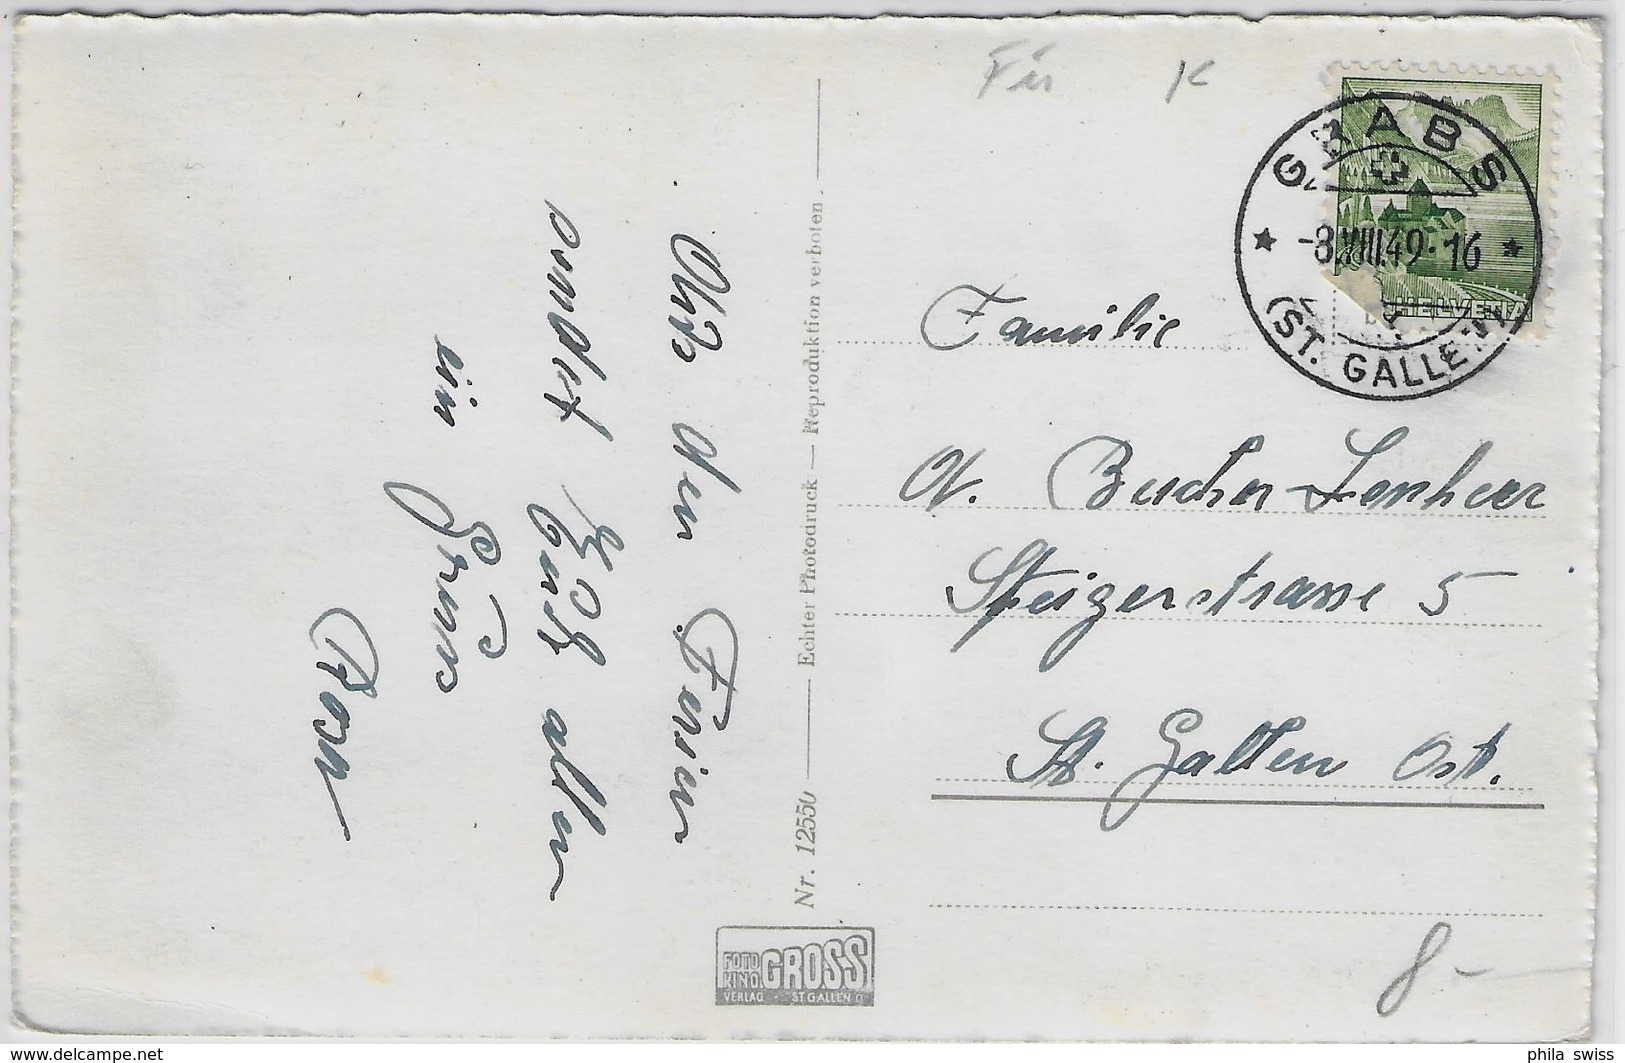 Aus den Ferien
sendet Euch allen
ein Gruss
Rosa
Nr. 12550 Echter Photodruck — Reproduktion verboten.
FOTO KINO GROSS
VERLAG ST GALLEN O
Für K
GRABS
-8.VIII.49.-16
(ST. GALLEN)
HELVETIA
Familie
A. Bucher-Lenherr
Steigerstrasse 5
St. Gallen Ost.
8-
www.delcampe.net
phila swiss